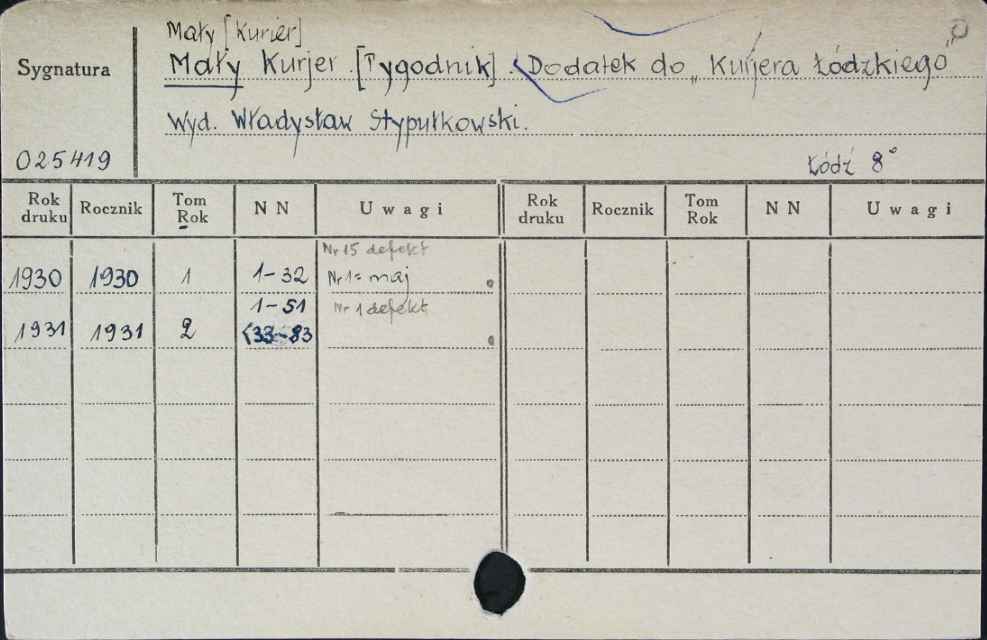 Mały [Kurier]
Sygnatura
Mały Kurjer [Tygodnik]. Dodatek do „Kurjera Łódzkiego"
Wyd. Władysław Stypułkowski.
025419
Łódź 8°
Rok druku Rocznik Tom Rok NN Uwagi Rok druku Rocznik Tom Rok NN Uwagi
Nr 15 defekt
1930 1930 1 1-32 Nr 1 = maj
1-51 Nr 1 defekt
1931 1931 2 (33-83